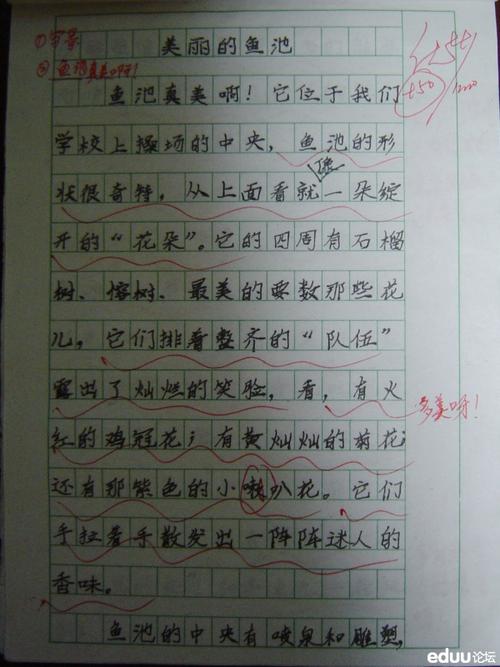 ①字
美丽的鱼池
②鱼池真美啊！
鱼池真美啊！它位于我们
学校上操场的中央，鱼池的形
像
状很奇特，从上面看就一朵绽
开的“花朵”。它的四周有石榴
树、榕树、最美的要数那些花
儿，它们排着整齐的“队伍”
露出了灿烂的笑脸，看，有火
多美呀！
红的鸡冠花；有黄灿灿的菊花；
还有那紫色的小喇叭花。它们
手拉着手散发出一阵阵迷人的
香味。
鱼池的中央有喷泉和雕塑，
eduu论坛